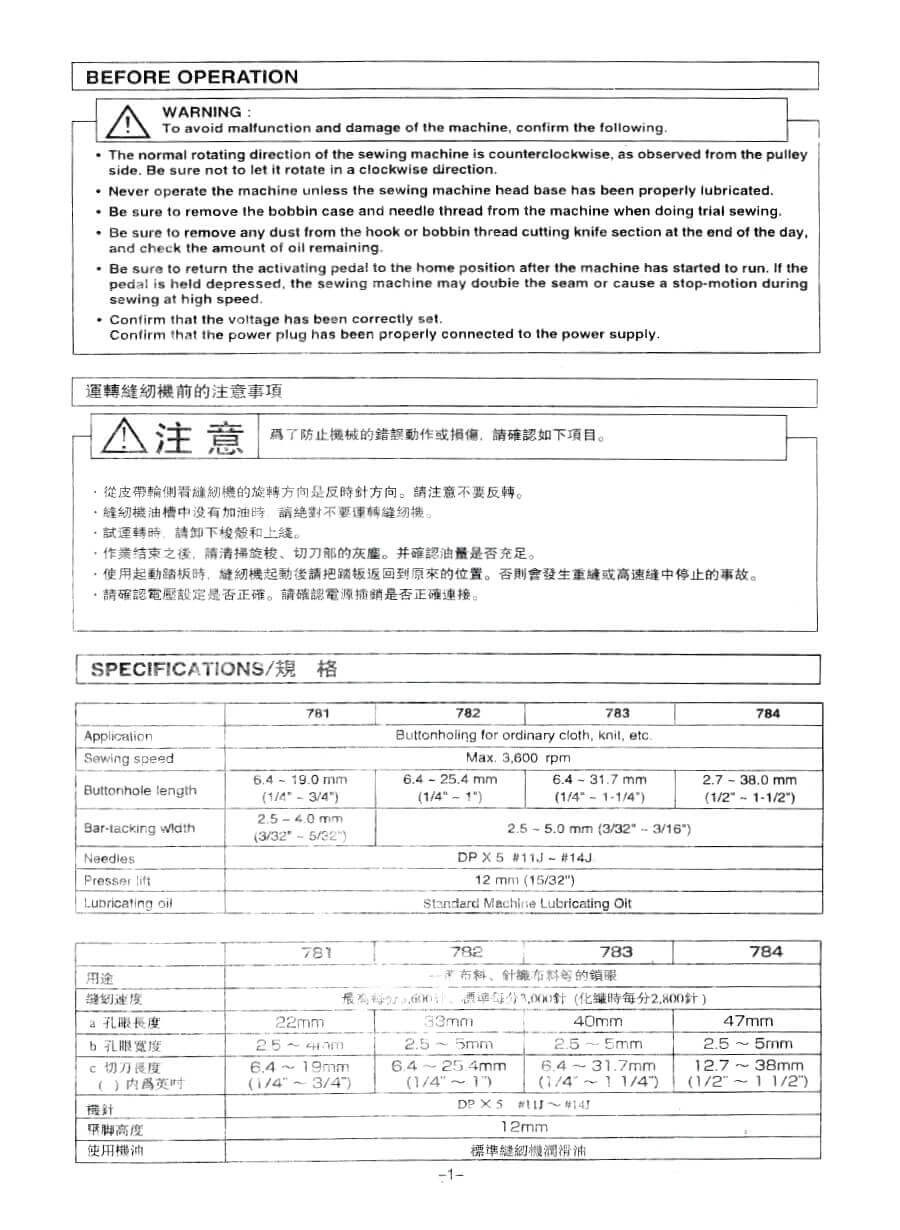 BEFORE OPERATION
WARNING :
To avoid malfunction and damage of the machine, confirm the following.
• The normal rotating direction of the sewing machine is counterclockwise, as observed from the pulley
side. Be sure not to let it rotate in a clockwise direction.
• Never operate the machine unless the sewing machine head base has been properly lubricated.
• Be sure to remove the bobbin case and needle thread from the machine when doing trial sewing.
• Be sure to remove any dust from the hook or bobbin thread cutting knife section at the end of the day,
and check the amount of oil remaining.
• Be sure to return the activating pedal to the home position after the machine has started to run. If the
pedal is held depressed, the sewing machine may double the seam or cause a stop-motion during
sewing at high speed.
• Confirm that the voltage has been correctly set.
Confirm that the power plug has been properly connected to the power supply.
運轉縫紉機前的注意事項
注 意 爲了防止機械的錯誤動作或損傷，請確認如下項目。
· 從皮帶輪側看縫紉機的旋轉方向是反時針方向。請注意不要反轉。
· 縫紉機油槽中没有加油時，請絶對不要運轉縫紉機。
· 試運轉時，請卸下梭殼和上綫。
· 作業結束之後，請清掃旋梭、切刀部的灰塵。并確認油量是否充足。
· 使用起動踏板時，縫紉機起動後請把踏板返回到原來的位置。否則會發生重縫或高速縫中停止的事故。
· 請確認電壓設定是否正確。請確認電源插銷是否正確連接。
SPECIFICATIONS/規 格
781 782 783 784
Application Buttonholing for ordinary cloth, knit, etc.
Sewing speed Max. 3,600 rpm
Buttonhole length 6.4 ~ 19.0 mm (1/4" ~ 3/4") 6.4 ~ 25.4 mm (1/4" ~ 1") 6.4 ~ 31.7 mm (1/4" ~ 1-1/4") 2.7 ~ 38.0 mm (1/2" ~ 1-1/2")
Bar-tacking width 2.5 ~ 4.0 mm (3/32" ~ 5/32") 2.5 ~ 5.0 mm (3/32" ~ 3/16")
Needles DP X 5 #11J ~ #14J
Presser lift 12 mm (15/32")
Lubricating oil Standard Machine Lubricating Oil
781 782 783 784
用途 布料、針織布料等的鎖眼
縫紉速度 3,000針 (化纖時每分2,800針)
a 孔眼長度 22mm 33mm 40mm 47mm
b 孔眼寬度 2.5 ~ 4mm 2.5 ~ 5mm 2.5 ~ 5mm 2.5 ~ 5mm
c 切刀長度 6.4 ~ 19mm 6.4 ~ 25.4mm 6.4 ~ 31.7mm 12.7 ~ 38mm
( ) 内爲英吋 (1/4" ~ 3/4") (1/4" ~ 1") (1/4" ~ 1 1/4") (1/2" ~ 1 1/2")
機針 DP × 5 #11J ~ #14J
壓脚高度 12mm
使用機油 標準縫紉機潤滑油
-1-